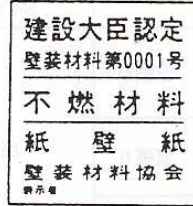 建設大臣認定
壁装材料第0001号
不燃材料
紙壁紙
壁装材料協会
表示者